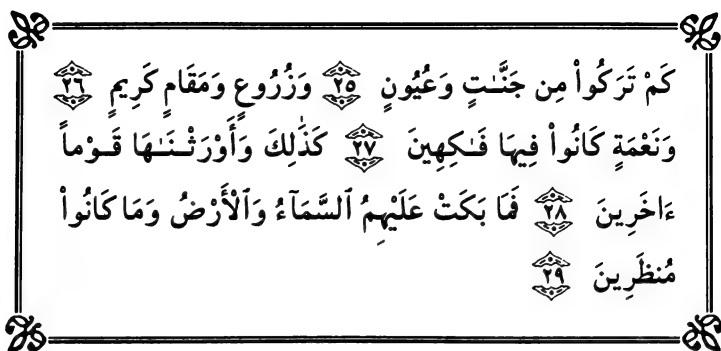 كَمْ تَرَكُواْ مِن جَنَّـٰتٍ وَعُيُونٍ ٢٥ وَزُرُوعٍ وَمَقَامٍ كَرِيمٍ ٢٦
وَنَعْمَةٍ كَانُواْ فِيهَا فَـٰكِهِينَ ٢٧ كَذَٰلِكَ وَأَوْرَثْنَـٰهَا قَوْماً
ءَاخَرِينَ ٢٨ فَمَا بَكَتْ عَلَيْهِمُ ٱلسَّمَآءُ وَٱلْأَرْضُ وَمَا كَانُواْ
مُنظَرِينَ ٢٩